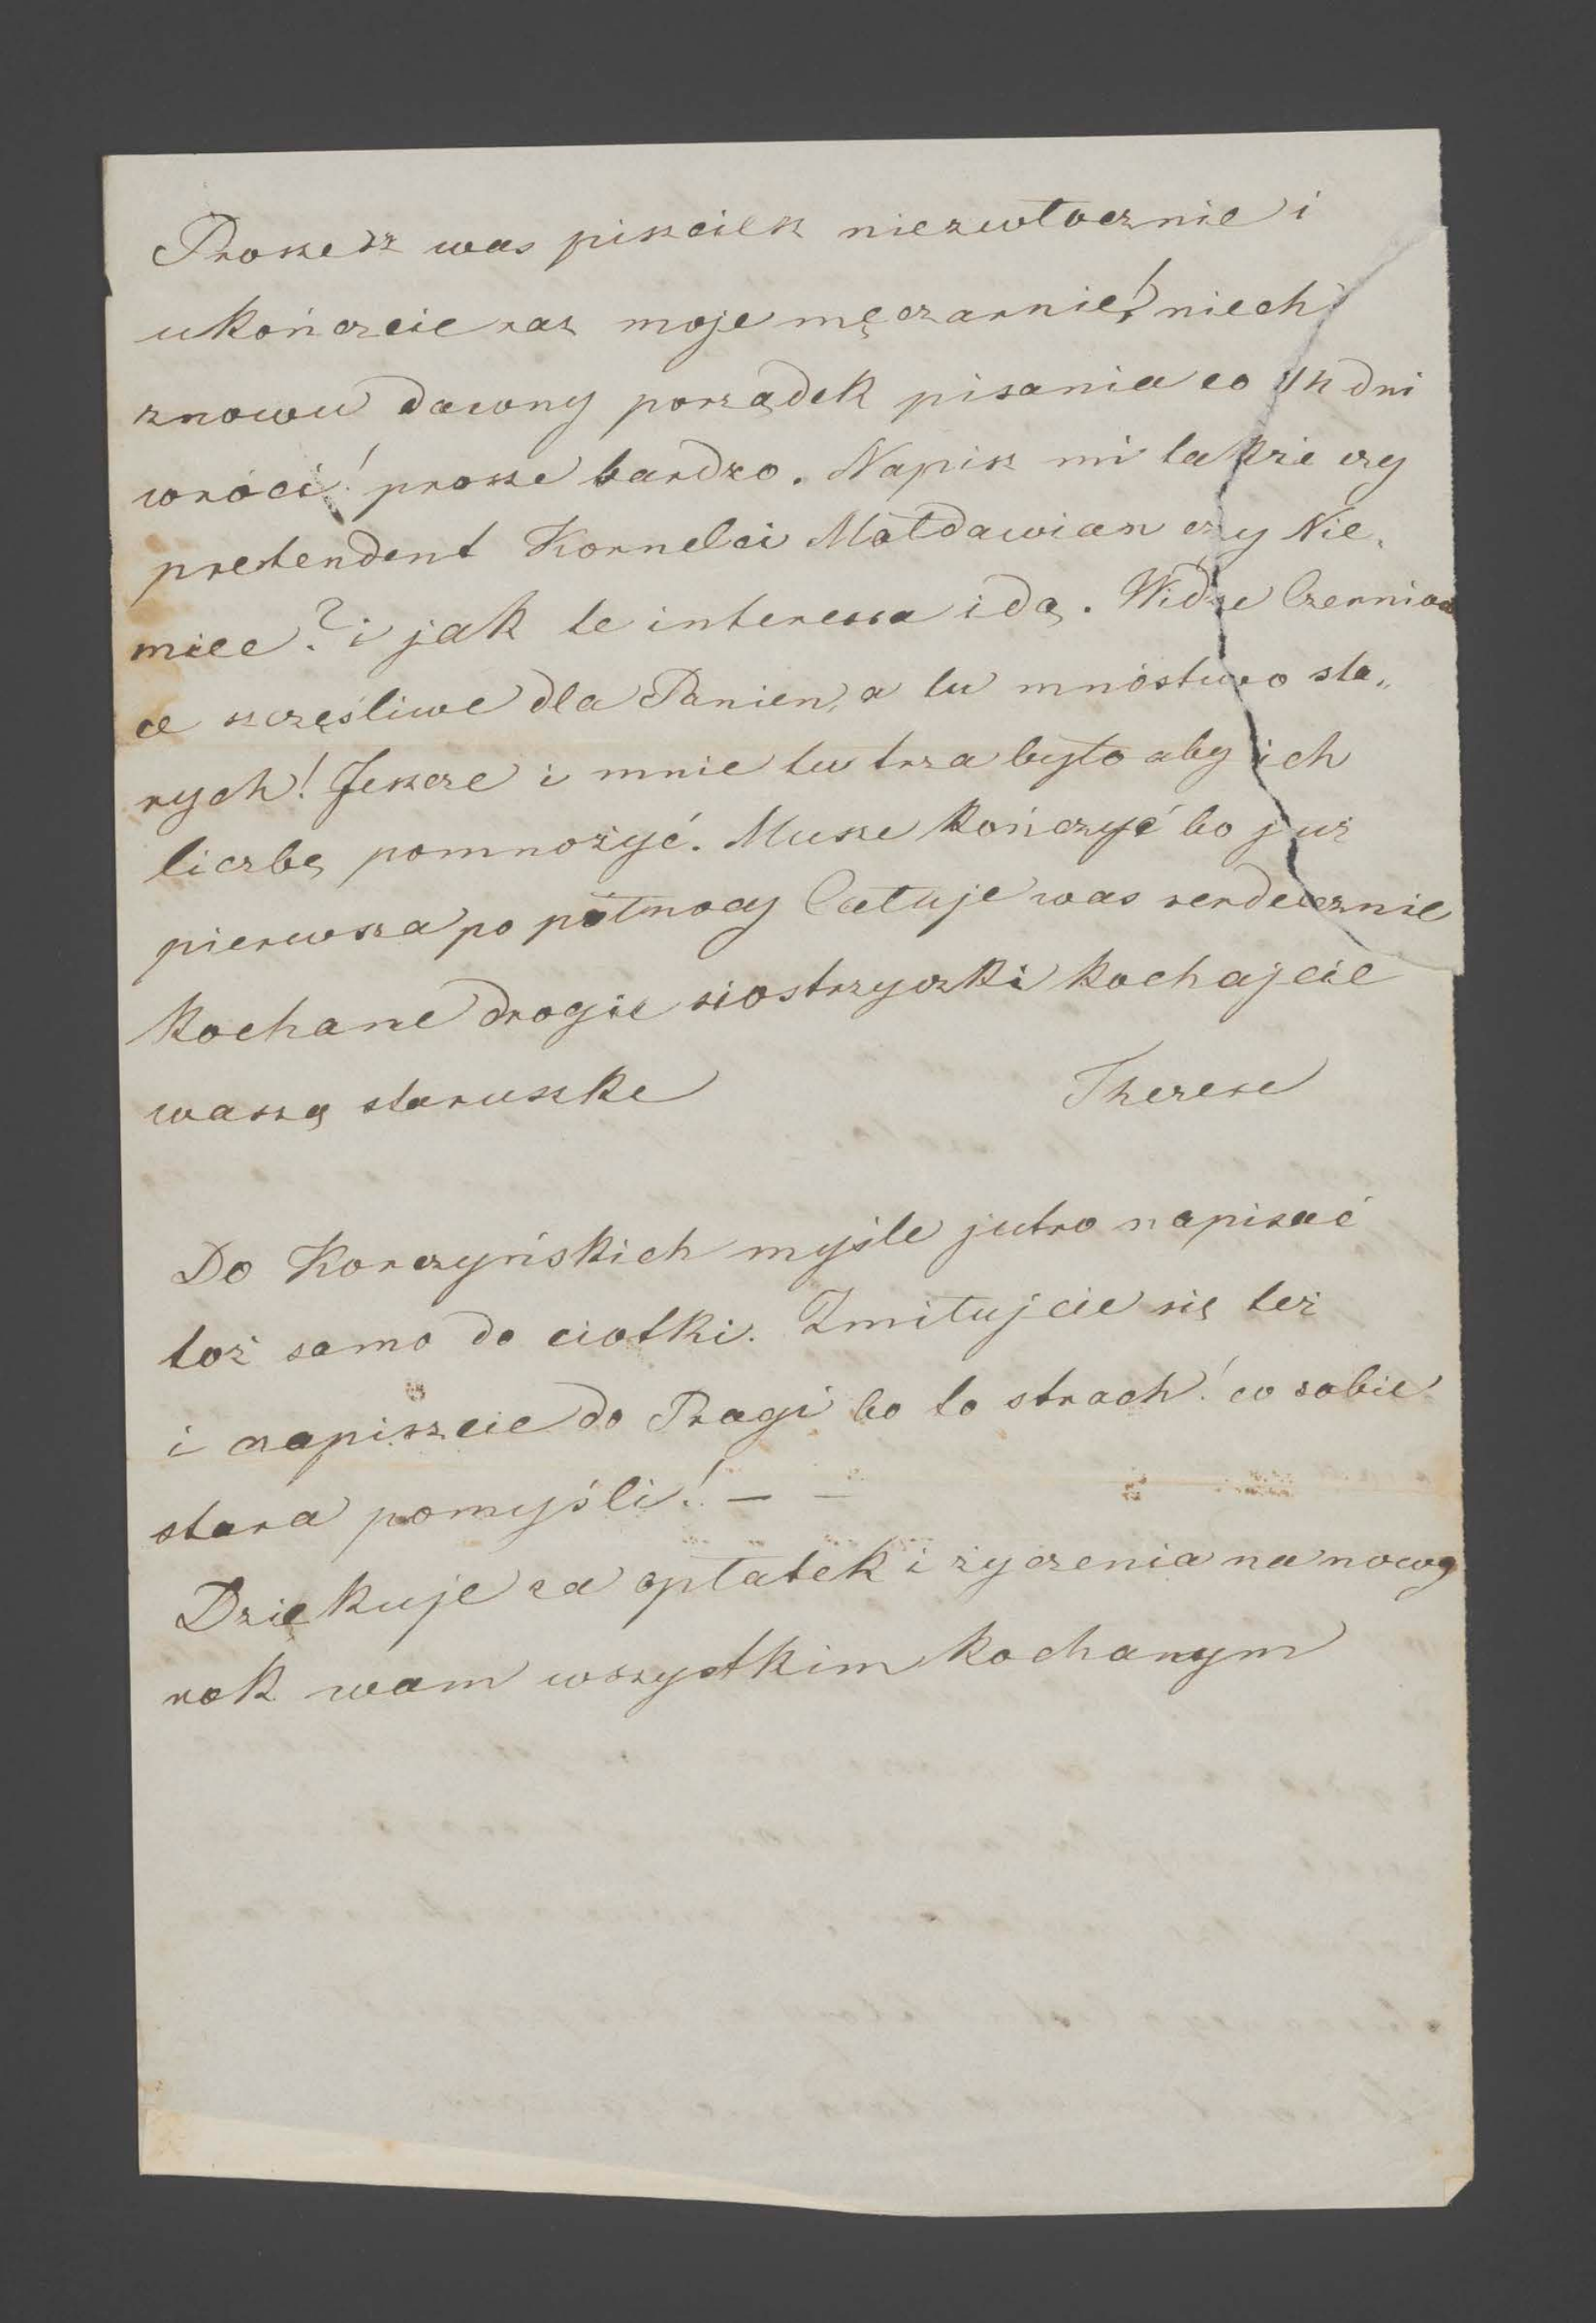 Prosze was piszcież niezwłocznie i
ukończcie raz moje męczarnie! niech
znowu dawny porządek pisania co 14 dni
wróci! prosze bardzo. Napisz mi także czy
pretendent Kornelci Mołdawian czy Nie„
miec? i jak te interessa idą. Widze Czerniow
ce szczęśliwe dla Panien, a tu mnóstwo sta„
rych! Jeszcze i mnie tu trza było aby ich
liczbę pomnożyć. Musze kończyć bo już
pierwsza po północy Całuje was serdecznie
kochane drogie siostrzyczki kochajcie
waszą staruszke Therese
Do Korczyńskich myśle jutro napisać
toż samo do ciotki. Zmiłujcie się też
i napiszcie do Pragi bo to strach! co sobie
stara pomyśli! — —
Dziękuje za opłatek i życzenia na nowy
rok wam wszystkim kochanym